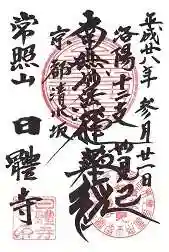 平成廿八年 参月廿一日
洛陽十二支妙見 巳
南無妙法蓮華経
京都清水坂
常照山 日體寺